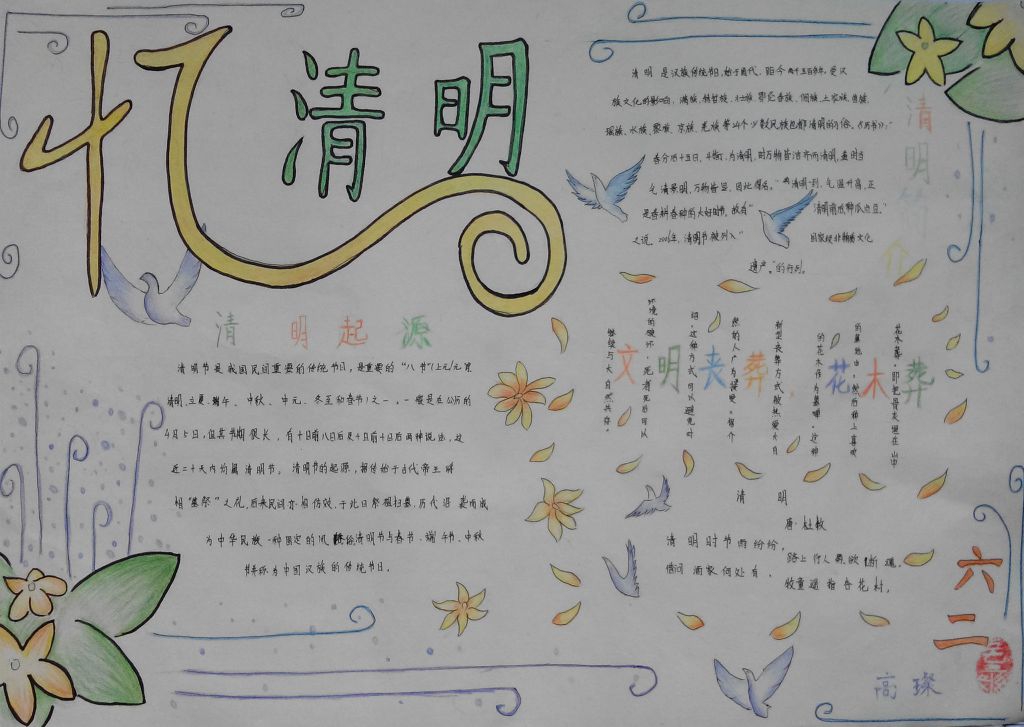 忆清明
清明起源
清明节是我国民间重要的传统节日，是重要的“八节”(上元、元宵
清明、立夏、端午、中秋、中元、冬至和春节)之一，一般是在公历的
4月5日，但其节期很长，有十日前八日后及十日前十日后两种说法，这
近二十天内均属清明节。清明节的起源，据传始于古代帝王将
相“墓祭”之礼，后来民间亦相仿效，于此日祭祖扫墓，历代沿袭而成
为中华民族一种固定的风俗。清明节与春节、端午节、中秋
节并称为中国汉族的传统节日。
清明简介
清明是汉族传统节日，始于周代，距今两千五百多年，受汉
族文化的影响，满族、赫哲族、壮族、鄂伦春族、侗族、土家族、苗族、
瑶族、水族、黎族、京族、羌族等24个少数民族也都清明的习俗。《历书》：“
春分后十五日，斗指丁，为清明，时万物皆洁齐而清明，盖时当
气清景明，万物皆显，因此得名。”清明一到，气温升高，正
是春耕春种的大好时节，故有“清明前后种瓜点豆。”
之说。2006年，清明节被列入“国家级非物质文化
遗产。”的行列。
文明丧葬，花木葬
花木葬：即把骨灰埋在山中
的墓地由，然后种上喜欢
的花木作为墓碑。这种
新型丧葬方式被热爱大自
然的人广为接受。
绍，这种方式可以避免对
环境的破坏，死者死后可以
继续与大自然共存。
清明
唐·杜牧
清明时节雨纷纷，
路上行人欲断魂。
借问酒家何处有，
牧童遥指杏花村。
六二
高璨